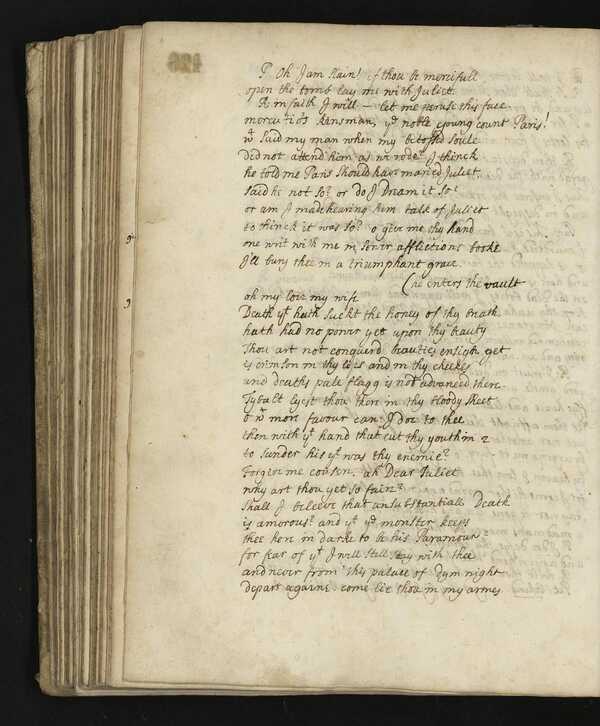 P. Oh I am slain! if thou be mercifull
open the tomb lay me with Juliet.
R In faith I will — let me peruse this face.
mercutio's kinsman, yᵉ noble young count Paris!
wᵗ said my man when my betossed soule
did not attend him as we rode? I thinck
he told me Paris should have maried Juliet.
said he not so? or do I Dream it so?
or am I mad hearing him talk of Juliet
to thinck it was so? o give me thy hand
one writ with me in sowr afflictions booke
I'll bury thee in a triumphant grave.
(he enters the vault
oh my love my wife
Death yᵗ hath suckt the honey of thy breath
hath had no power yet upon thy beauty
Thou art not conquerd beauties ensign yet
is crimson in thy lips and in thy cheekes
and deaths pale flagg is not advanced there.
Tybalt lyest thou there in thy bloody sheet
o wᵗ more favour can I doe to thee
then with yᵗ hand that cut thy youth in 2
to sunder his yᵗ was thy enemie?
Forgive me cousen. ah Dear Juliet
why art thou yet so fair?
Shall I beleeve that unsubstantiall Death
is amorous? and yᵗ yᵉ monster keeps
thee here in darke to be his Paramour
for fear of yᵗ I will still stay with thee
and never from this palace of dym night
depart againe. come lie thou in my armes